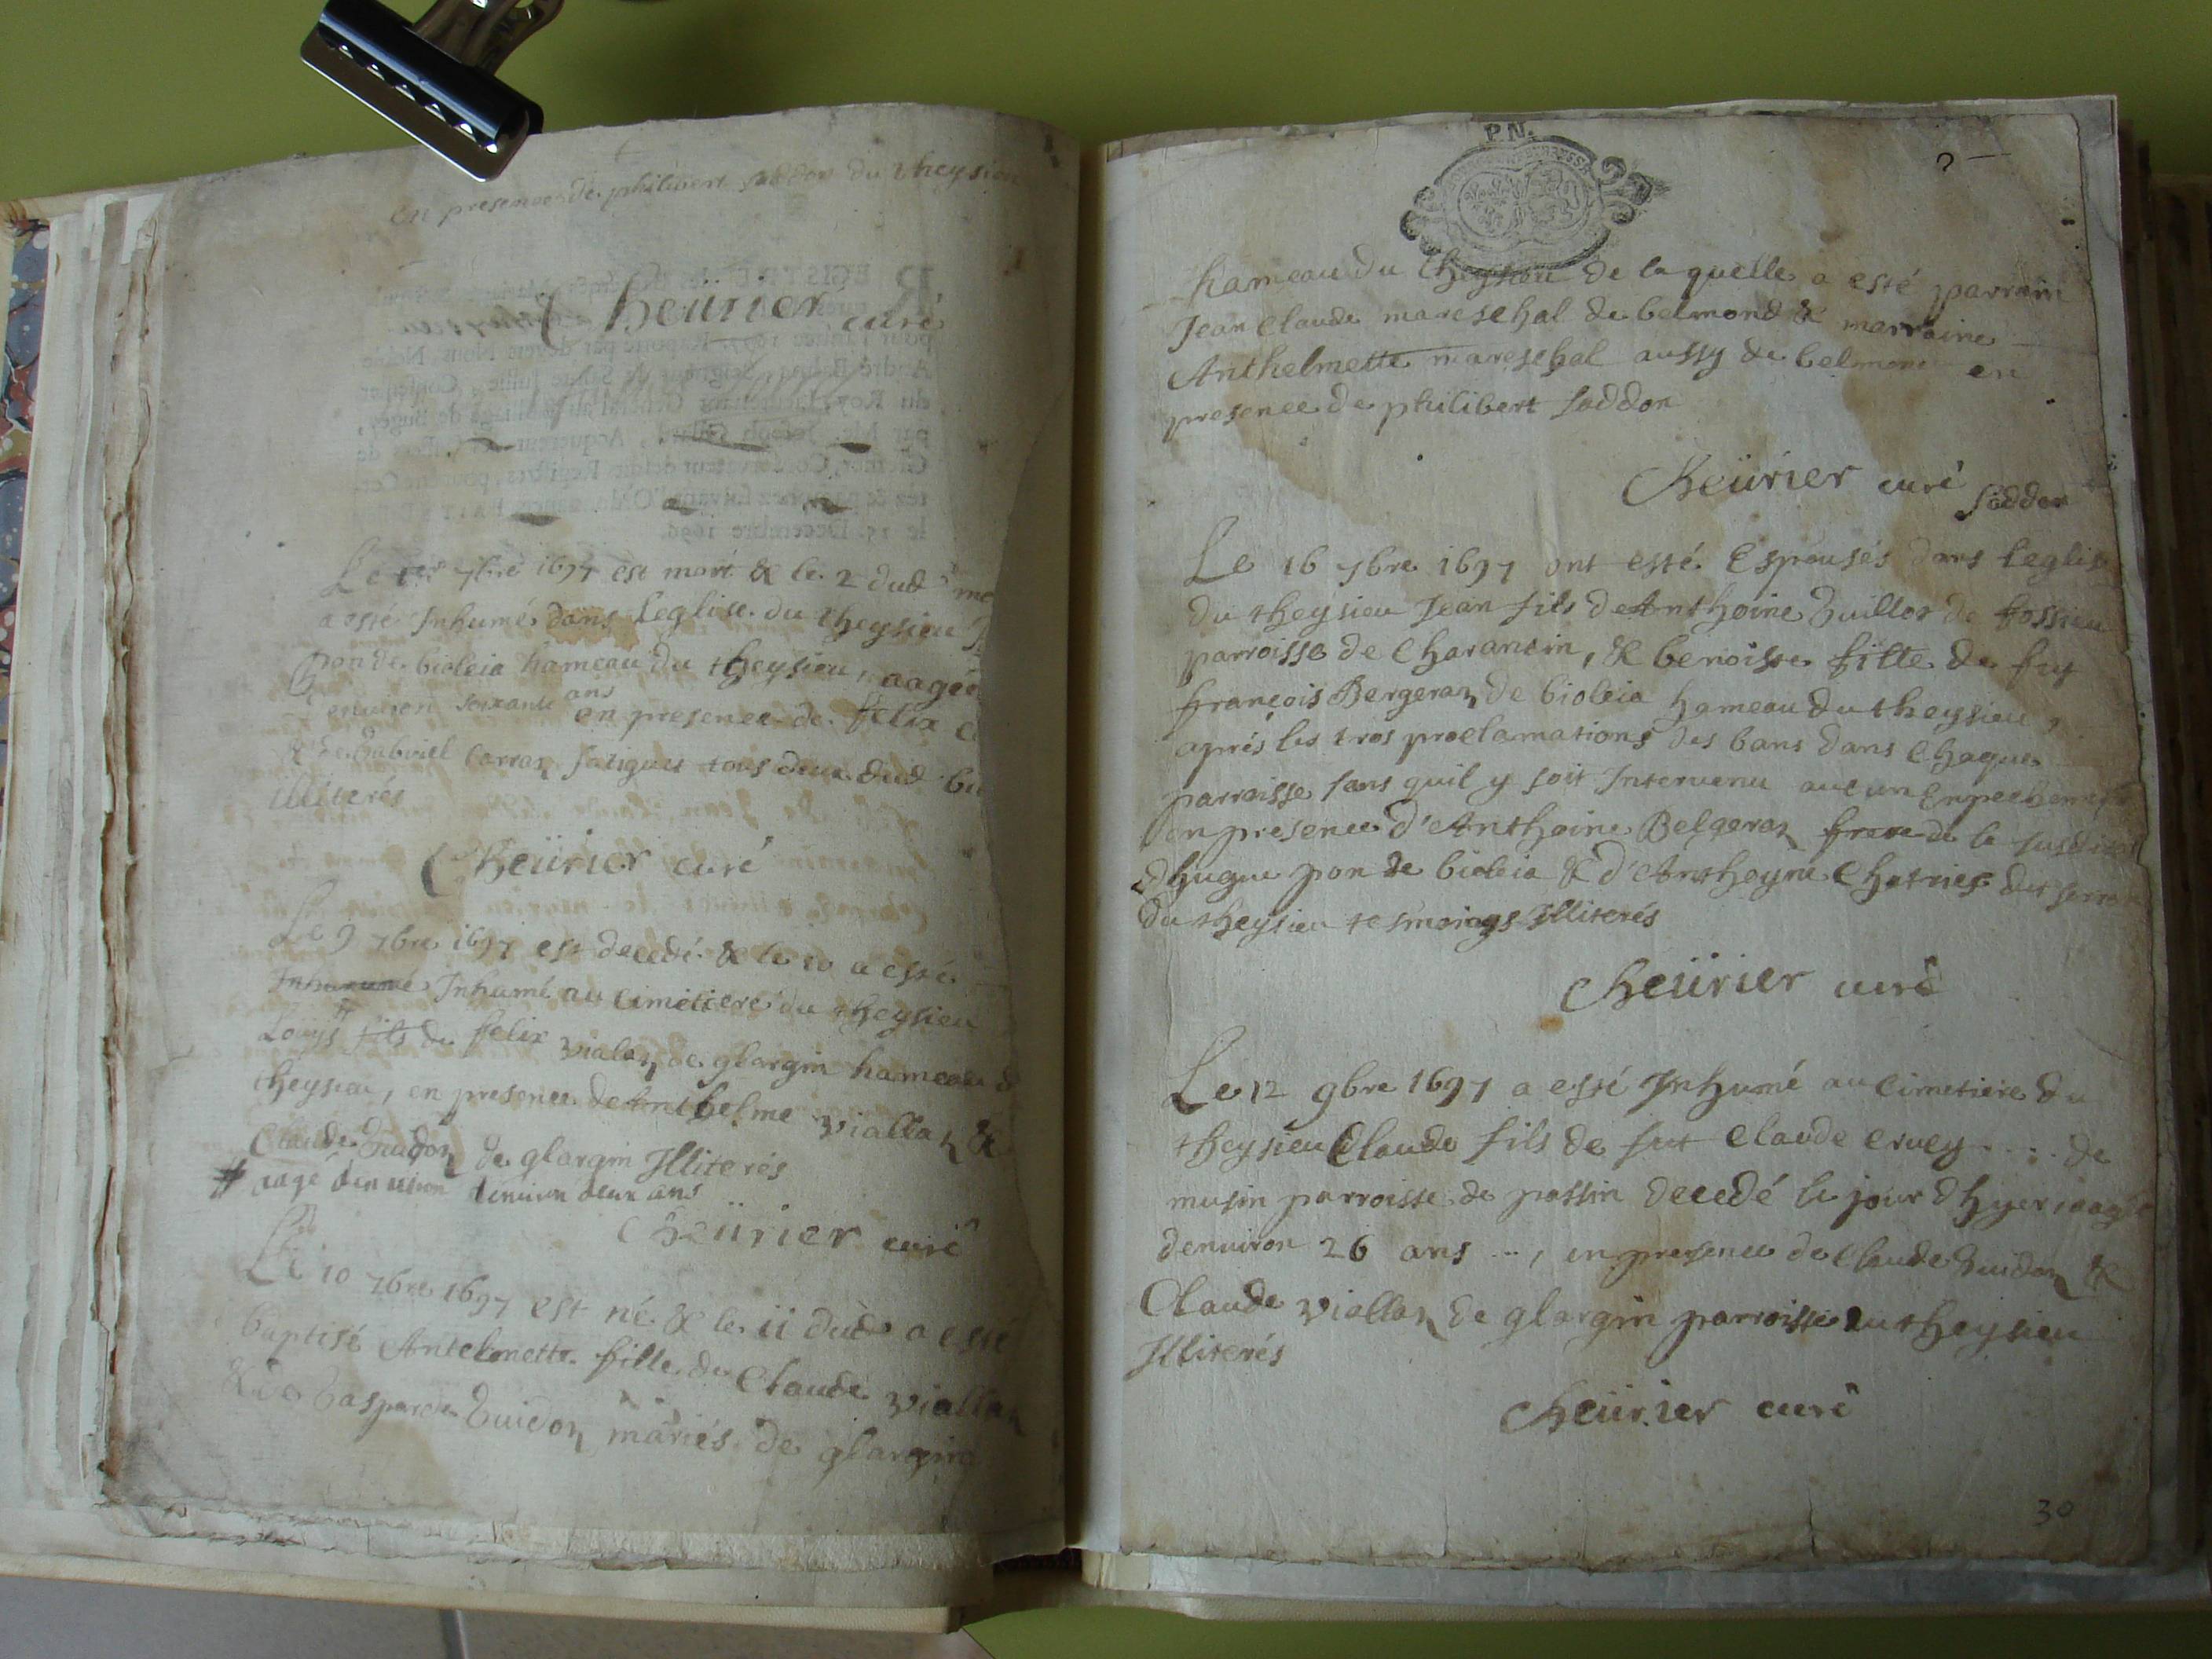 en presence de philibert soddon du theysieu
Cheürier curé
Le 1er 7bre 1697 est mort & le 2 dud
a esté Inhumé dans leglise du theysieu
pon de bioleia hameau du theysieu, aagé
environ soixante ans en presence de felix
& de Gabriel Carraz tous deux dud
illiterés
Cheürier curé
Le 9 7bre 1697 est decedé & le 10 a esté
Inhumé au cimetiere du theysieu
Loüys # fils de felix viallaz de glargin hameau
theysieu, en presence de Anthelme viallaz &
Claude Guidoz de glargin Illiterés
# aagé denuiron deux ans
Cheürier curé
Le 10 7bre 1697 est né & le 11 dud a esté
baptisé Antelmette fille de Claude viallaz
& de Gasparde Guidoz mariés de glargin
P.N.
hameau du theysieu de la quelle a esté parrain
Jean Claude mareschal de belmond & marraine
Anthelmette mareschal aussy de belmond en
presence de philibert soddon
Cheürier curé soddon
Le 16 7bre 1697 ont esté Espousés dans leglise
du theysieu Jean fils de Anthoine Guillot de fossieu
parroisse de Charancin, & benoisse fille de fut
françois Bergeraz de bioleia hameau du theysieu,
aprés les trois proclamations des bans dans Chaque
parroisse sans quil y soit Intervenu aucun Enpechement
en presence d'Anthoine Belgeraz frere de la susditte
dhugue pon de bioleia & d'Antheyne
du theysieu tesmoings Illiterés
Cheürier curé
Le 12 9bre 1697 a esté Inhumé au cimetiere du
theysieu Claude fils de fut Claude cruey .... de
musin parroisse de passin decedé le jour dhyer aagé
denuiron 26 ans ..., en presence de Claude Guidoz &
Claude viallaz de glargin parroisse du theysieu
Illiterés
Cheürier curé
30